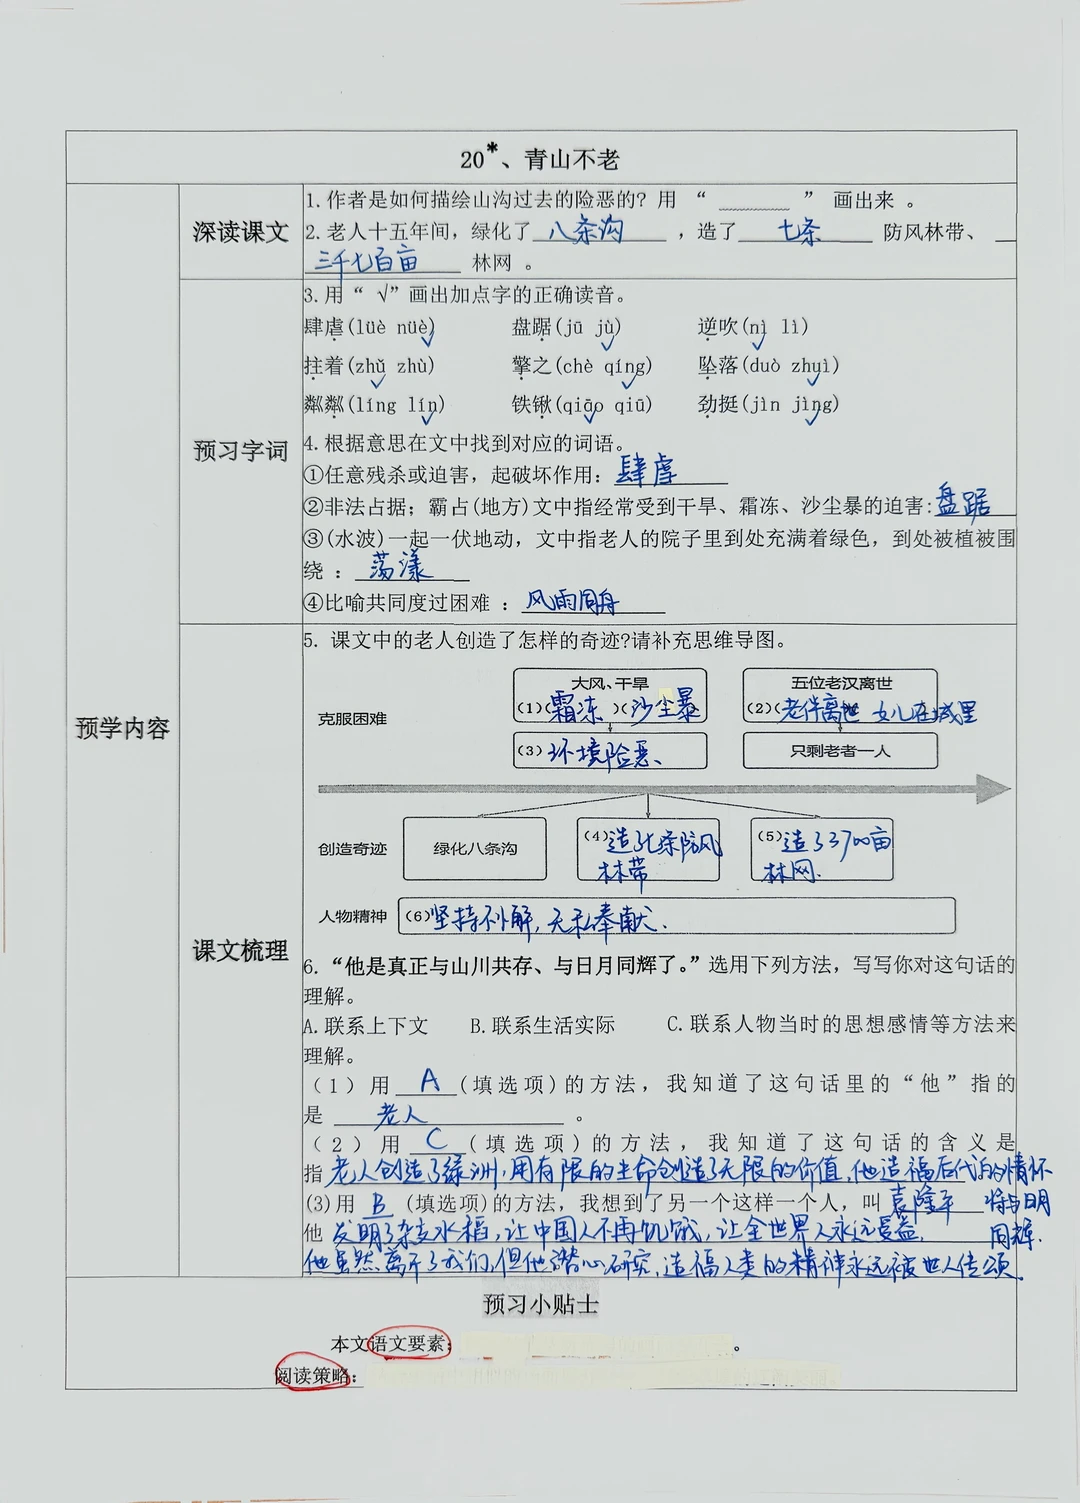 20*、青山不老
预学内容
深读课文
1.作者是如何描绘山沟过去的险恶的？用“______”画出来。
2.老人十五年间，绿化了 八条沟 ，造了 七条 防风林带、
三千七百亩 林网。
预习字词
3.用“√”画出加点字的正确读音。
肆虐(lüè nüè√) 盘踞(jū jù√) 逆吹(nì√ lì)
拄着(zhǔ√ zhù) 擎之(chè qíng√) 坠落(duò zhuì√)
粼粼(líng lín√) 铁锹(qiāo√ qiū) 劲挺(jìn jìng√)
4.根据意思在文中找到对应的词语。
①任意残杀或迫害，起破坏作用：肆虐
②非法占据；霸占(地方)文中指经常受到干旱、霜冻、沙尘暴的迫害:盘踞
③(水波)一起一伏地动，文中指老人的院子里到处充满着绿色，到处被植被围
绕：荡漾
④比喻共同度过困难：风雨同舟
课文梳理
5. 课文中的老人创造了怎样的奇迹?请补充思维导图。
大风、干旱 五位老汉离世
克服困难 (1)(霜冻)(沙尘暴 (2)(老伴离世 女儿在城里
(3)环境险恶、 只剩老者一人
创造奇迹 绿化八条沟 (4)造七条防风 (5)造了3700亩
林带 林网.
人物精神 (6)坚持不懈，无私奉献、
6.“他是真正与山川共存、与日月同辉了。”选用下列方法，写写你对这句话的
理解。
A.联系上下文 B.联系生活实际 C.联系人物当时的思想感情等方法来
理解。
（1）用 A (填选项)的方法，我知道了这句话里的“他”指的
是 老人 。
（2）用 C (填选项)的方法，我知道了这句话的含义是
指 老人创造了绿洲，用有限的生命创造了无限的价值，他造福后代的情怀
将与日月
同辉.
(3)用 B (填选项)的方法，我想到了另一个这样一个人，叫 袁隆平
他 发明了杂交水稻，让中国人不再饥饿，让全世界人永远受益.
他虽然离开了我们，但他潜心研究，造福人类的精神永远被世人传颂.
预习小贴士
本文语文要素： 。
阅读策略：